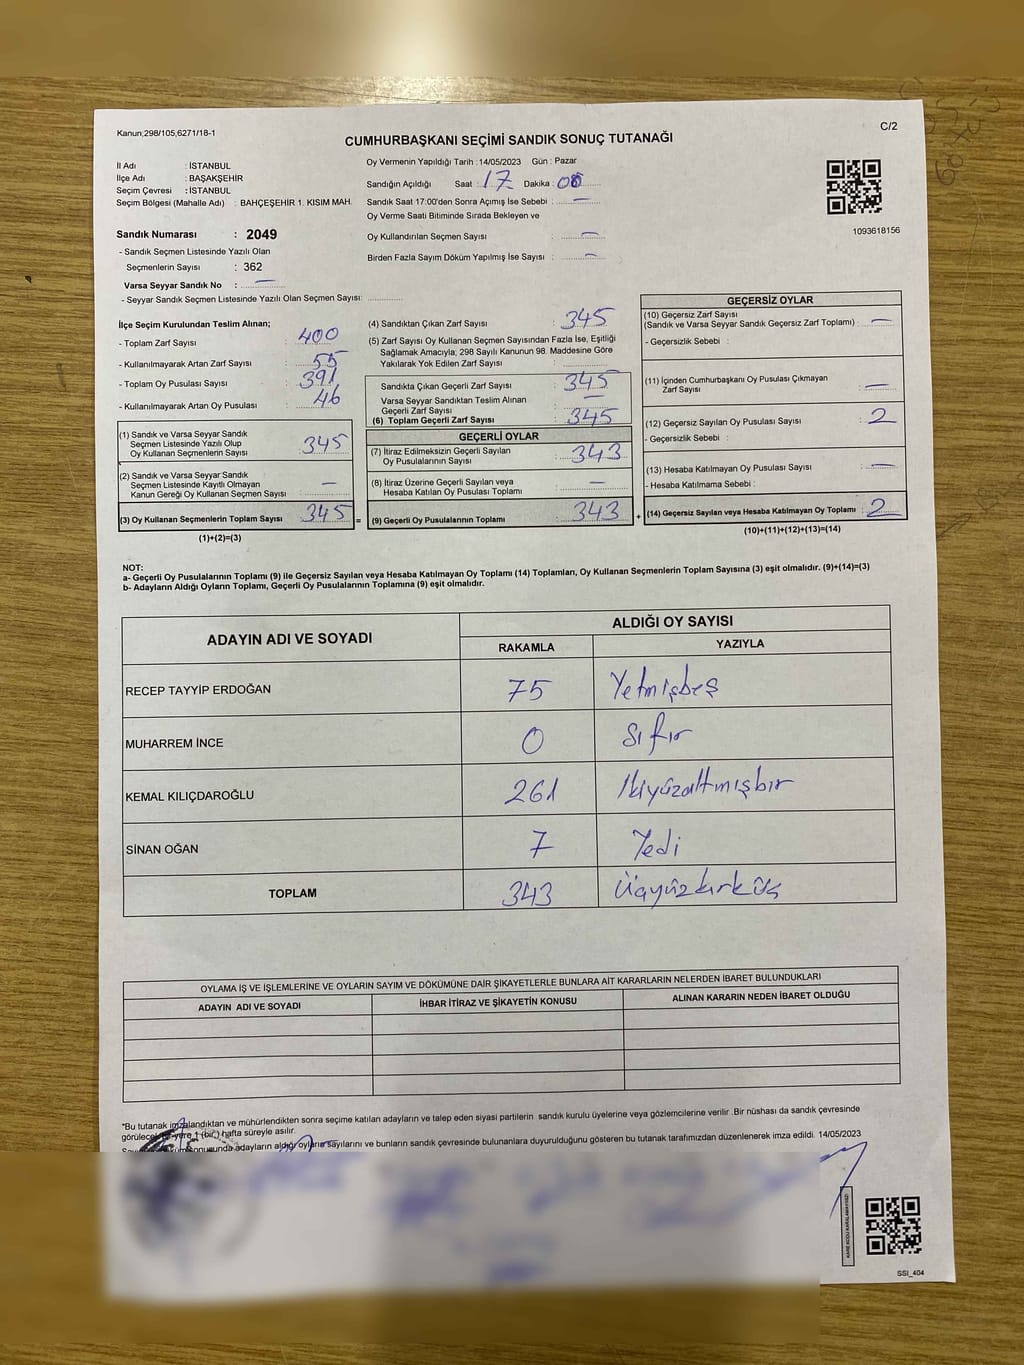 Kanun;298/105,6271/18-1
C/2
CUMHURBAŞKANI SEÇİMİ SANDIK SONUÇ TUTANAĞI
İl Adı : İSTANBUL
İlçe Adı : BAŞAKŞEHİR
Seçim Çevresi : İSTANBUL
Seçim Bölgesi (Mahalle Adı) : BAHÇEŞEHİR 1. KISIM MAH.
Sandık Numarası : 2049
- Sandık Seçmen Listesinde Yazılı Olan
Seçmenlerin Sayısı : 362
Varsa Seyyar Sandık No : —
- Seyyar Sandık Seçmen Listesinde Yazılı Olan Seçmen Sayısı:
Oy Vermenin Yapıldığı Tarih : 14/05/2023 Gün : Pazar
Sandığın Açıldığı Saat : 17 Dakika : 00
Sandık Saat 17:00'den Sonra Açımış İse Sebebi : —
Oy Verme Saati Bitiminde Sırada Bekleyen ve
Oy Kullandırılan Seçmen Sayısı : —
Birden Fazla Sayım Döküm Yapılmış İse Sayısı : —
1093618156
İlçe Seçim Kurulundan Teslim Alınan;
- Toplam Zarf Sayısı : 400
- Kullanılmayarak Artan Zarf Sayısı : 55
- Toplam Oy Pusulası Sayısı : 391
- Kullanılmayarak Artan Oy Pusulası : 46
(1) Sandık ve Varsa Seyyar Sandık
Seçmen Listesinde Yazılı Olup
Oy Kullanan Seçmenlerin Sayısı : 345
(2) Sandık ve Varsa Seyyar Sandık
Seçmen Listesinde Kayıtlı Olmayan
Kanun Gereği Oy Kullanan Seçmen Sayısı : —
(3) Oy Kullanan Seçmenlerin Toplam Sayısı : 345 =
(1)+(2)=(3)
(4) Sandıktan Çıkan Zarf Sayısı : 345
(5) Zarf Sayısı Oy Kullanan Seçmen Sayısından Fazla İse, Eşitliği
Sağlamak Amacıyla; 298 Sayılı Kanunun 98. Maddesine Göre
Yakılarak Yok Edilen Zarf Sayısı :
Sandıkta Çıkan Geçerli Zarf Sayısı : 345
Varsa Seyyar Sandıktan Teslim Alınan
Geçerli Zarf Sayısı : —
(6) Toplam Geçerli Zarf Sayısı : 345
GEÇERLİ OYLAR
(7) İtiraz Edilmeksizin Geçerli Sayılan
Oy Pusulalarının Sayısı : 343
(8) İtiraz Üzerine Geçerli Sayılan veya
Hesaba Katılan Oy Pusulası Toplamı : —
(9) Geçerli Oy Pusulalarının Toplamı : 343 +
GEÇERSİZ OYLAR
(10) Geçersiz Zarf Sayısı
(Sandık ve Varsa Seyyar Sandık Geçersiz Zarf Toplamı) : —
- Geçersizlik Sebebi :
(11) İçinden Cumhurbaşkanı Oy Pusulası Çıkmayan
Zarf Sayısı : —
(12) Geçersiz Sayılan Oy Pusulası Sayısı : 2
- Geçersizlik Sebebi :
(13) Hesaba Katılmayan Oy Pusulası Sayısı : —
- Hesaba Katılmama Sebebi :
(14) Geçersiz Sayılan veya Hesaba Katılmayan Oy Toplamı : 2
(10)+(11)+(12)+(13)=(14)
NOT:
a- Geçerli Oy Pusulalarının Toplamı (9) ile Geçersiz Sayılan veya Hesaba Katılmayan Oy Toplamı (14) Toplamları, Oy Kullanan Seçmenlerin Toplam Sayısına (3) eşit olmalıdır. (9)+(14)=(3)
b- Adayların Aldığı Oyların Toplamı, Geçerli Oy Pusulalarının Toplamına (9) eşit olmalıdır.
ADAYIN ADI VE SOYADI
ALDIĞI OY SAYISI
RAKAMLA YAZIYLA
RECEP TAYYİP ERDOĞAN 75 Yetmişbeş
MUHARREM İNCE 0 Sıfır
KEMAL KILIÇDAROĞLU 261 İkiyüzaltmışbir
SİNAN OĞAN 7 Yedi
TOPLAM 343 Üçyüzkırküç
OYLAMA İŞ VE İŞLEMLERİNE VE OYLARIN SAYIM VE DÖKÜMÜNE DAİR ŞİKAYETLERLE BUNLARA AİT KARARLARIN NELERDEN İBARET BULUNDUKLARI
ADAYIN ADI VE SOYADI İHBAR İTİRAZ VE ŞİKAYETİN KONUSU ALINAN KARARIN NEDEN İBARET OLDUĞU
*Bu tutanak imzalandıktan ve mühürlendikten sonra seçime katılan adayların ve talep eden siyasi partilerin sandık kurulu üyelerine veya gözlemcilerine verilir .Bir nüshası da sandık çevresinde
görülecek bir yere 1 (bir) hafta süreyle asılır.
adayların aldığı oyların sayılarını ve bunların sandık çevresinde bulunanlara duyurulduğunu gösteren bu tutanak tarafımızdan düzenlenerek imza edildi. 14/05/2023
KARE KODU KARALAMAYINIZ!
SSI_404